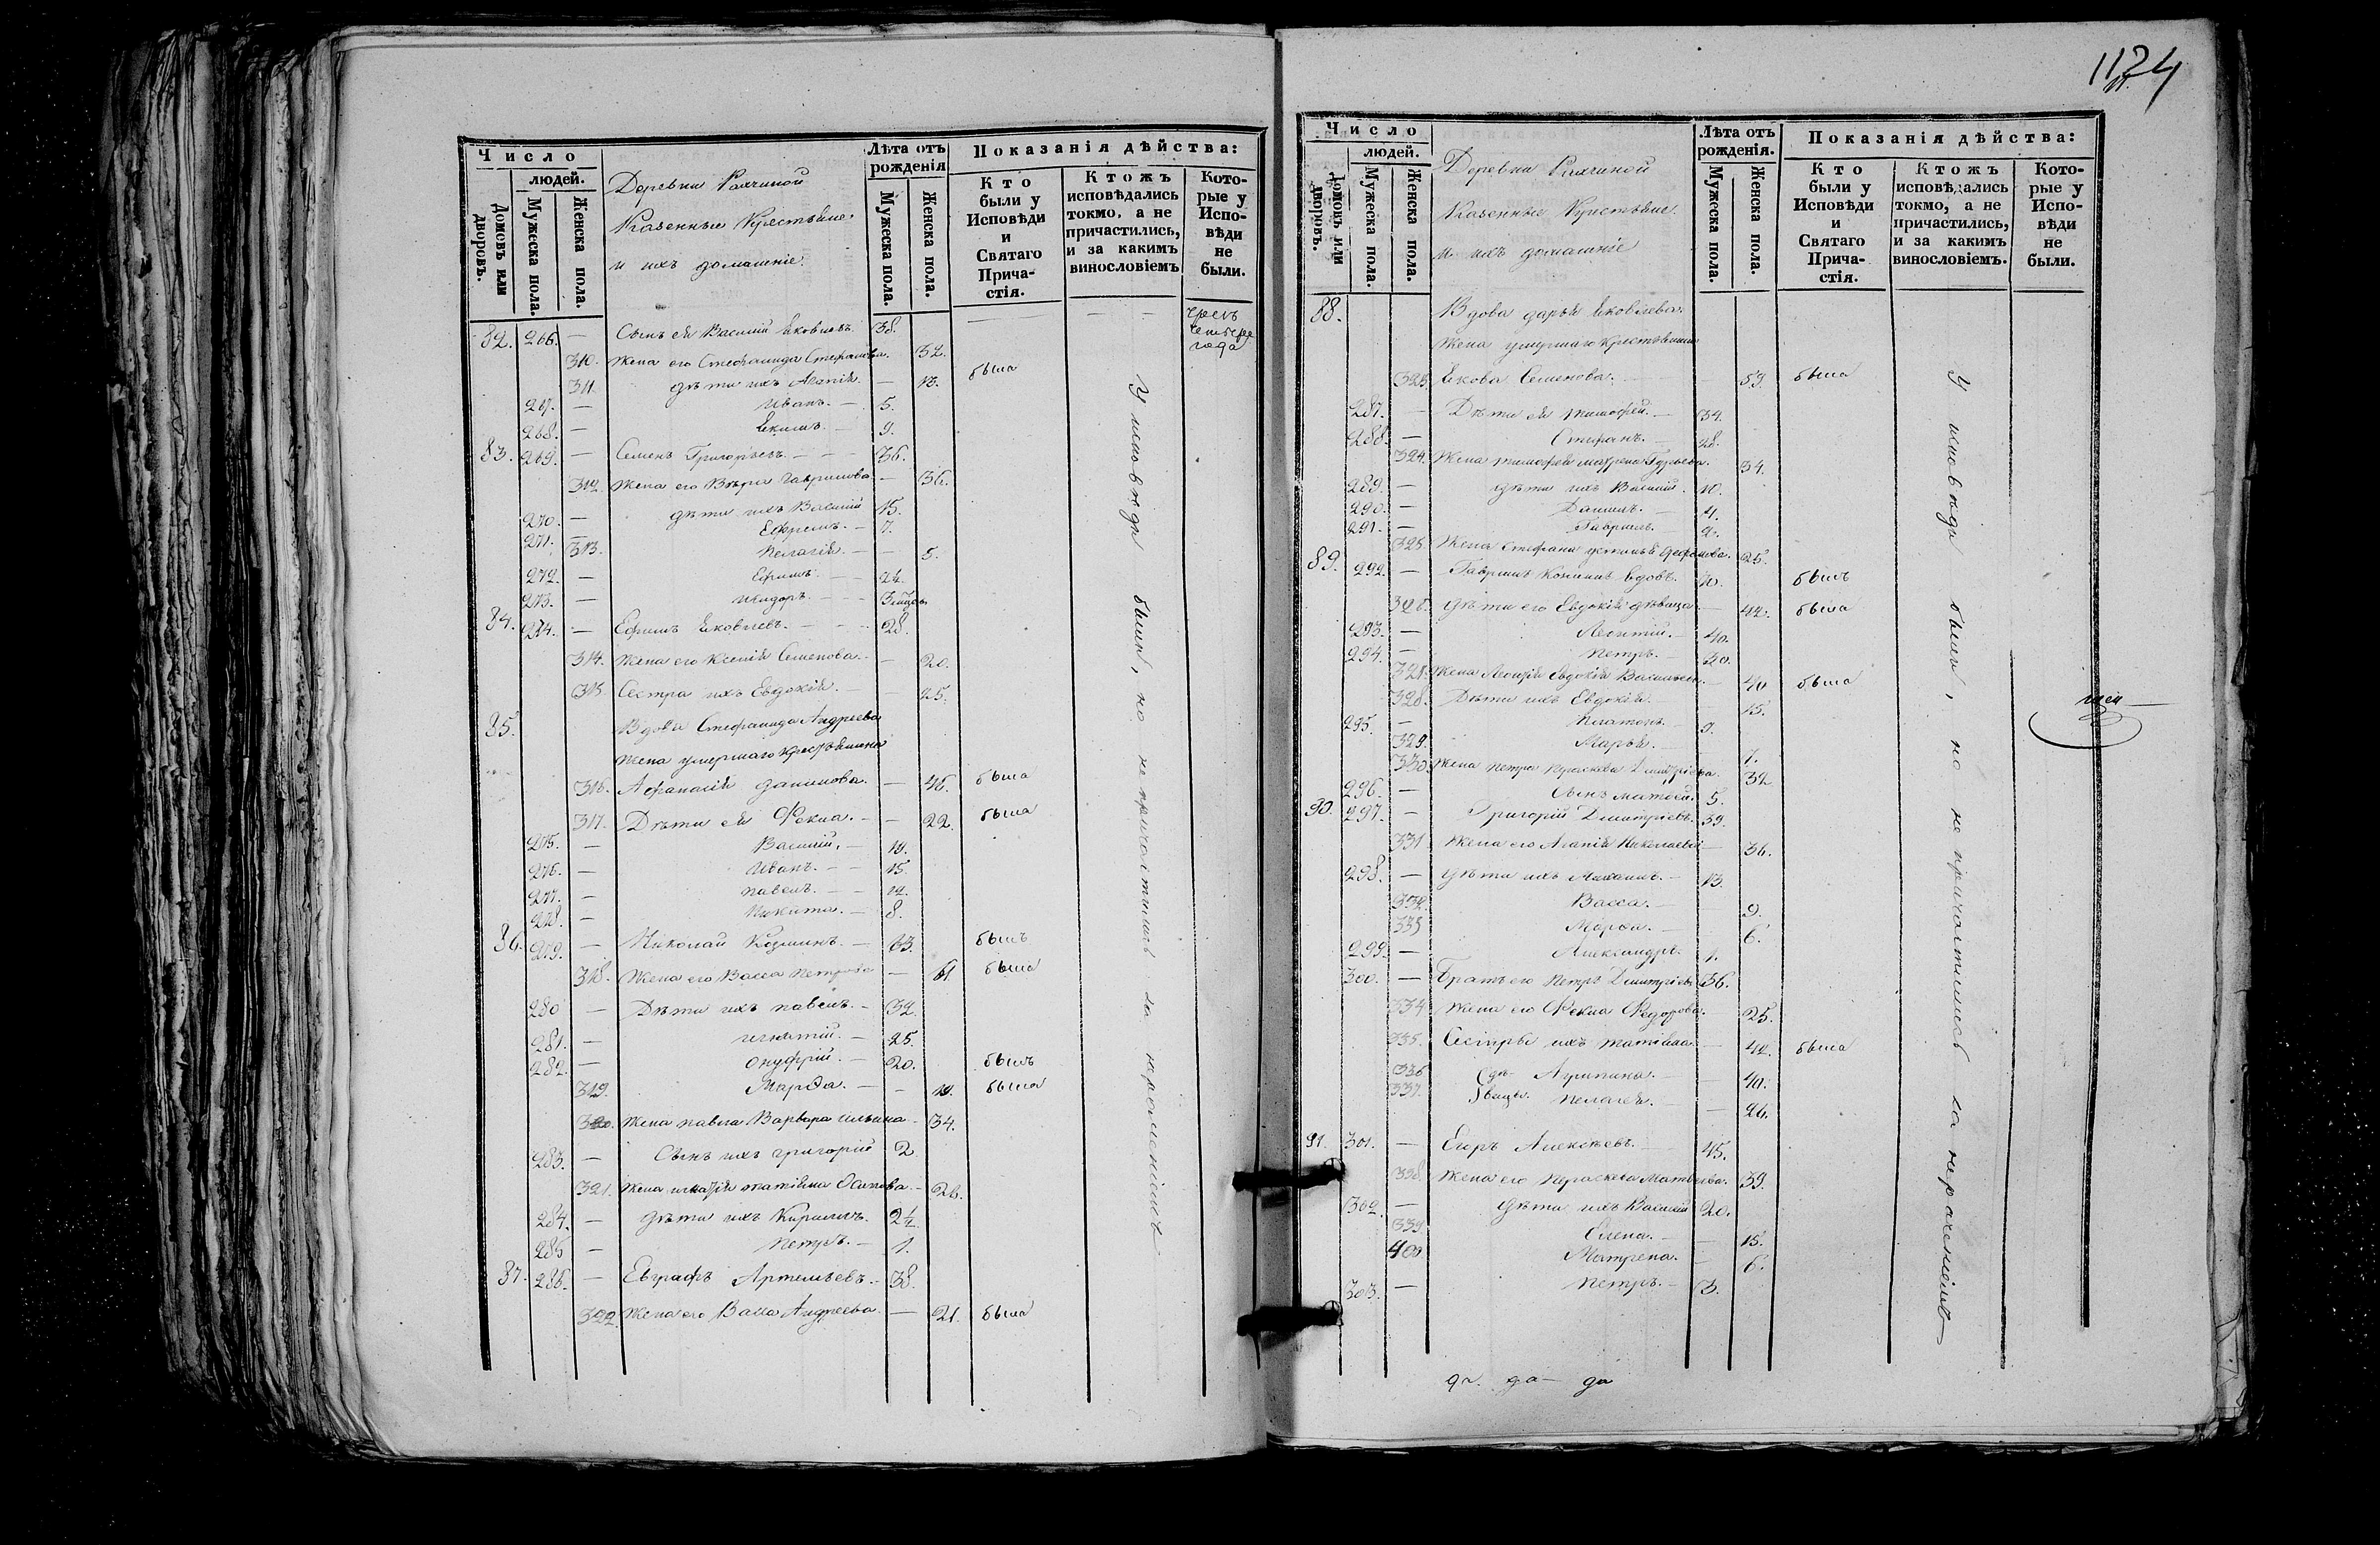 1124
Число
людей.
Домовъ или дворовъ.
Мужеска пола.
Женска пола.
Деревни
Казенные Крестьяне
и ихъ домашніе.
Лѣта отъ рожденія
Мужеска пола.
Женска пола.
Показанія дѣйства:
Кто были у Исповѣди и Святаго Прича-стія.
Ктожъ исповѣдались токмо, а не причастились, и за какимъ винословіемъ
Кото-рые у Испо-вѣди не были.
82. 266. — Сынъ ея Василій Яковлевъ. 38. — — — чрезъ четыре года
310. Жена его Стефанида Стефанова. 32. была
311. дѣти ихъ Агапія. — 13.
267. — Иванъ. — 5.
268. — Екимъ. — 9.
83. 269. — Семенъ Григорьевъ. — — 36.
312. Жена его Вѣра Гаврилова — 36.
270. — дѣти ихъ Василій 15.
271. — Ефремъ. — 7.
313. Пелагія. — — 5.
272. — Ефимъ. — —
273. — Исидоръ. — — 3
84. 274. — Ефимъ Яковлевъ. — — 28.
314. Жена его Ксенія Семенова. — 20.
315. Сестра ихъ Евдокія. — — 25.
85. Вдова Стефанида Андреева
жена умершаго крестьянина
316. Афанасія Данилова. — 46. была
317. Дѣти ея Фекла. — — 22. была
275. — Василій. — 19.
276. — Иванъ. — — 15.
277. — Павелъ. — — 12.
278. — Никита. — 8.
86. 279. — Николай Козминъ. — 63. былъ
318. Жена его Васса Петрова — 61. была
280 — Дѣти ихъ Павелъ. — 32.
281. — Игнатій. — 25.
282. — Онуфрій. — 20. былъ
319. Марфа. — — 19. была
320. Жена Павла Варвара Ильина — 34.
283. — Сынъ ихъ Григорій 2
321. Жена Игнатія Татіана Осипова. — 26.
284. — дѣти ихъ Кирилъ. 2½
285 — Петръ. — 1.
87. 286. — Евграфъ Артемьевъ. — 38.
322. Жена его Васса Андреева. — 21. была
У исповѣди были, но не причастились за нераченіемъ
Число
людей.
Домовъ или дворовъ.
Мужеска пола.
Женска пола.
Деревни
Казенные Крестьяне.
и ихъ домашніе
Лѣта отъ рожденія.
Мужеска пола.
Женска пола.
Показанія дѣйства:
Кто были у Исповѣди и Святаго Прича-стія.
Ктожъ исповѣдались токмо, а не причастились, и за какимъ винословіемъ.
Кото-рые у Испо-вѣди не были.
88. Вдова Дарья Яковлева
жена умершаго крестьянина
323. Якова Семенова. — 59. была
287. — Дѣти ея Тимофей. — 34.
288. — Стефанъ. — 28.
324. Жена Тимофея Матрена Гурьева. 34.
289. — дѣти ихъ Василій. 10.
290. — Даніилъ. — 4.
291. — Гавріилъ. — 2.
325. Жена Стефана Устинья 25.
89. 292. — Гавріилъ вдовъ. былъ
326. дѣти его Евдокія дѣвица. 42. была
293. — Леонтій. — 40.
294. — Петръ. — 30.
327. Жена Леонтія Евдокія Васильева — 40 была
328. Дѣти ихъ Евдокія. 15.
295. — Платонъ. — 9.
329. Марья. — 7.
330. Жена Петра Параскева Дмитріева. 32
296. — Сынъ Матвей. 5.
90. 297. — Григорій Дмитріевъ. 39.
331 Жена его Агапія Николаева — 36.
298. — дѣти ихъ Михаилъ. — 13.
332. Васса. — 9.
333 Марфа. — 6.
299. — Александръ. 1.
300. — Братъ его Петръ Дмитріевъ 36.
334 Жена его Фекла Федорова. 25.
335. Сестры ихъ Татіана — 42. была
336 дѣ- Агрипина. — 40.
337. вицы. Пелагея. — 26.
91. 301. — Егоръ Алексѣевъ. — 45.
338. Жена его Параскева Матвѣева. 39.
302. — дѣти ихъ Василій 20.
339 Елена. — 15.
400 Матрена. — 6.
303. — Петръ. — 3.
У исповѣди были, но не причастились за нераченіемъ